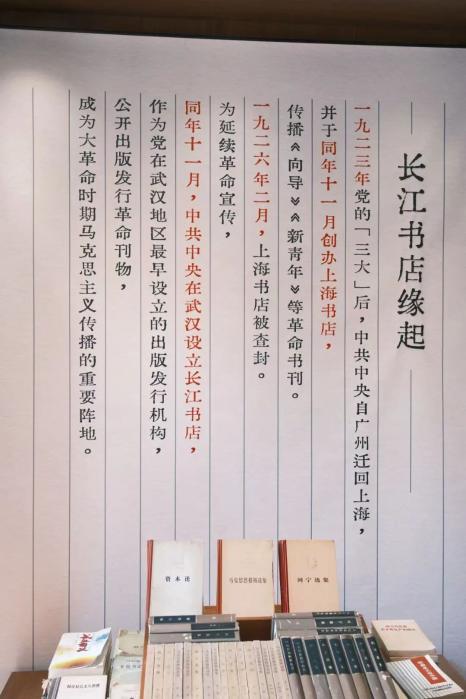 长江书店缘起
一九二三年党的「三大」后，中共中央自广州迁回上海，
并于同年十一月创办上海书店，
传播《向导》《新青年》等革命书刊。
一九二六年二月，上海书店被查封。
为延续革命宣传，
同年十一月，中共中央在武汉设立长江书店，
作为党在武汉地区最早设立的出版发行机构，
公开出版发行革命刊物，
成为大革命时期马克思主义传播的重要阵地。
资本论
马克思恩格斯选集
列宁选集